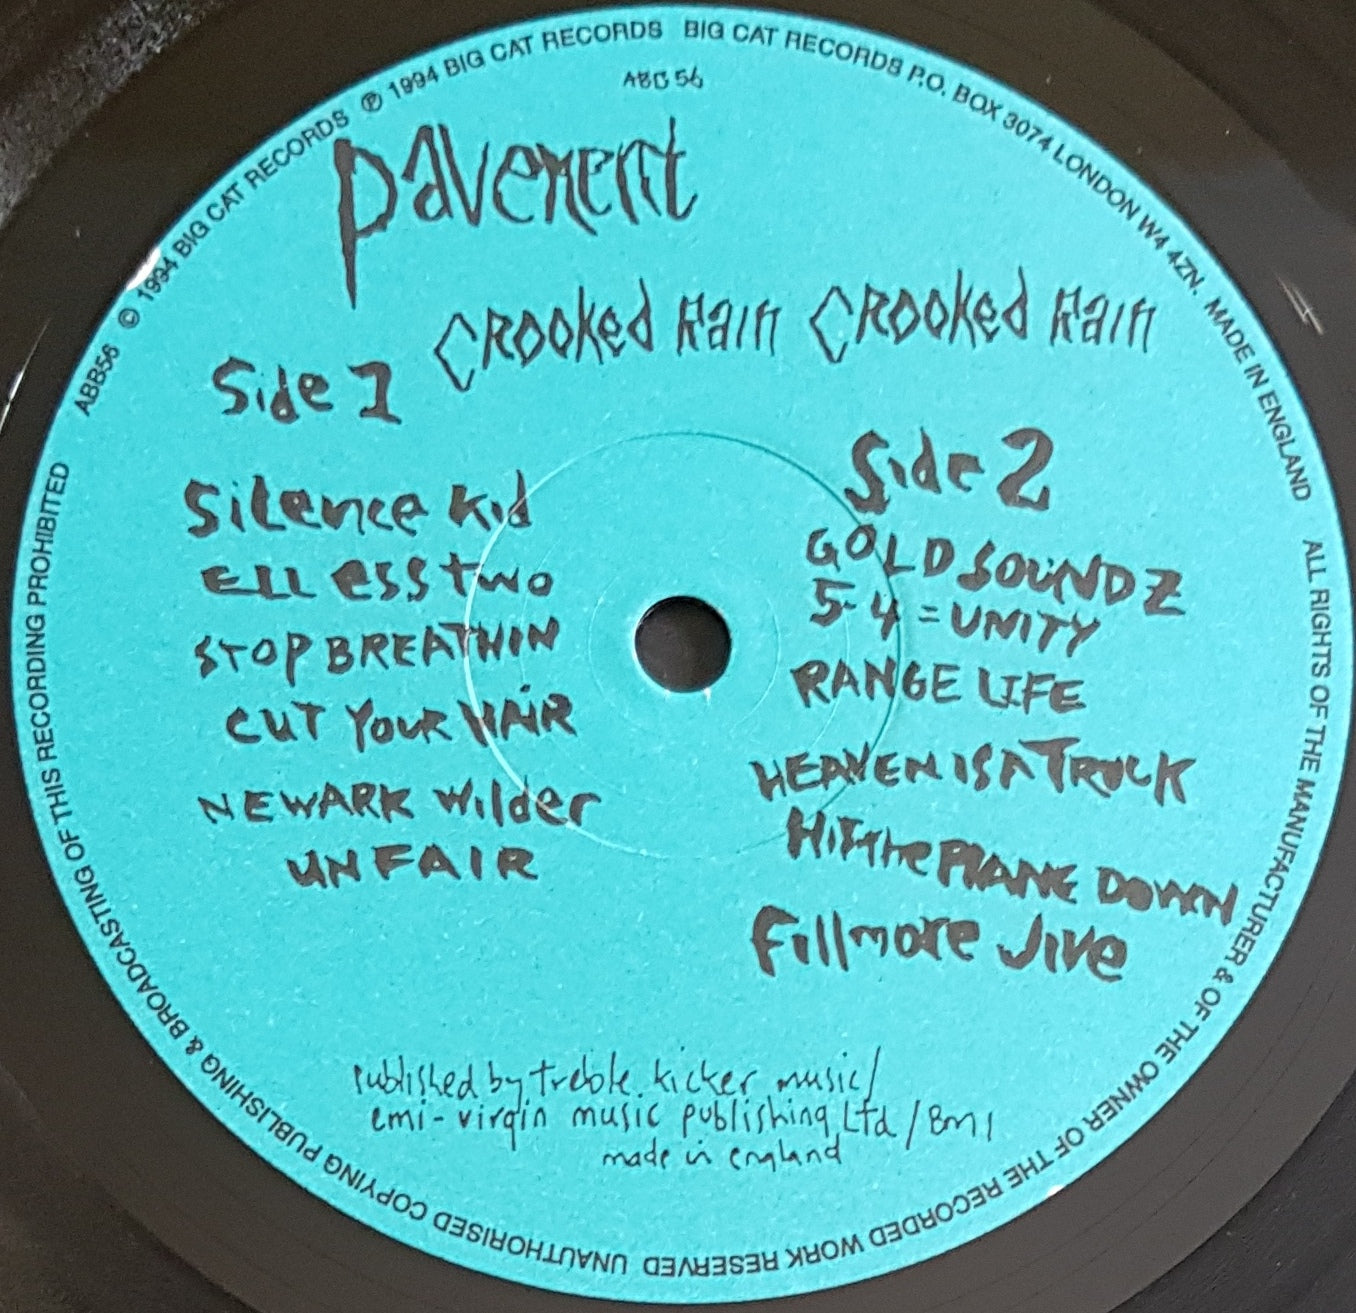 ABB56 © 1994 BIG CAT RECORDS ℗ 1994 BIG CAT RECORDS BIG CAT RECORDS P.O. BOX 3074 LONDON W4 4ZN. MADE IN ENGLAND
ALL RIGHTS OF THE MANUFACTURER & OF THE OWNER OF THE RECORDED WORK RESERVED UNAUTHORISED COPYING PUBLISHING & BROADCASTING OF THIS RECORDING PROHIBITED
ABB 56
Pavement
Crooked Rain Crooked Rain
Side 1
Silence Kid
Ell Ess Two
STOP BREATHIN
CUT YOUR HAIR
NEWARK Wilder
UNFAIR
Side 2
GOLD SOUNDZ
5-4 = UNITY
RANGE LIFE
HEAVEN IS A TRUCK
Hit the PLANE DOWN
Fillmore Jive
published by treble kicker music/
emi-virgin music publishing Ltd / BMI
made in england